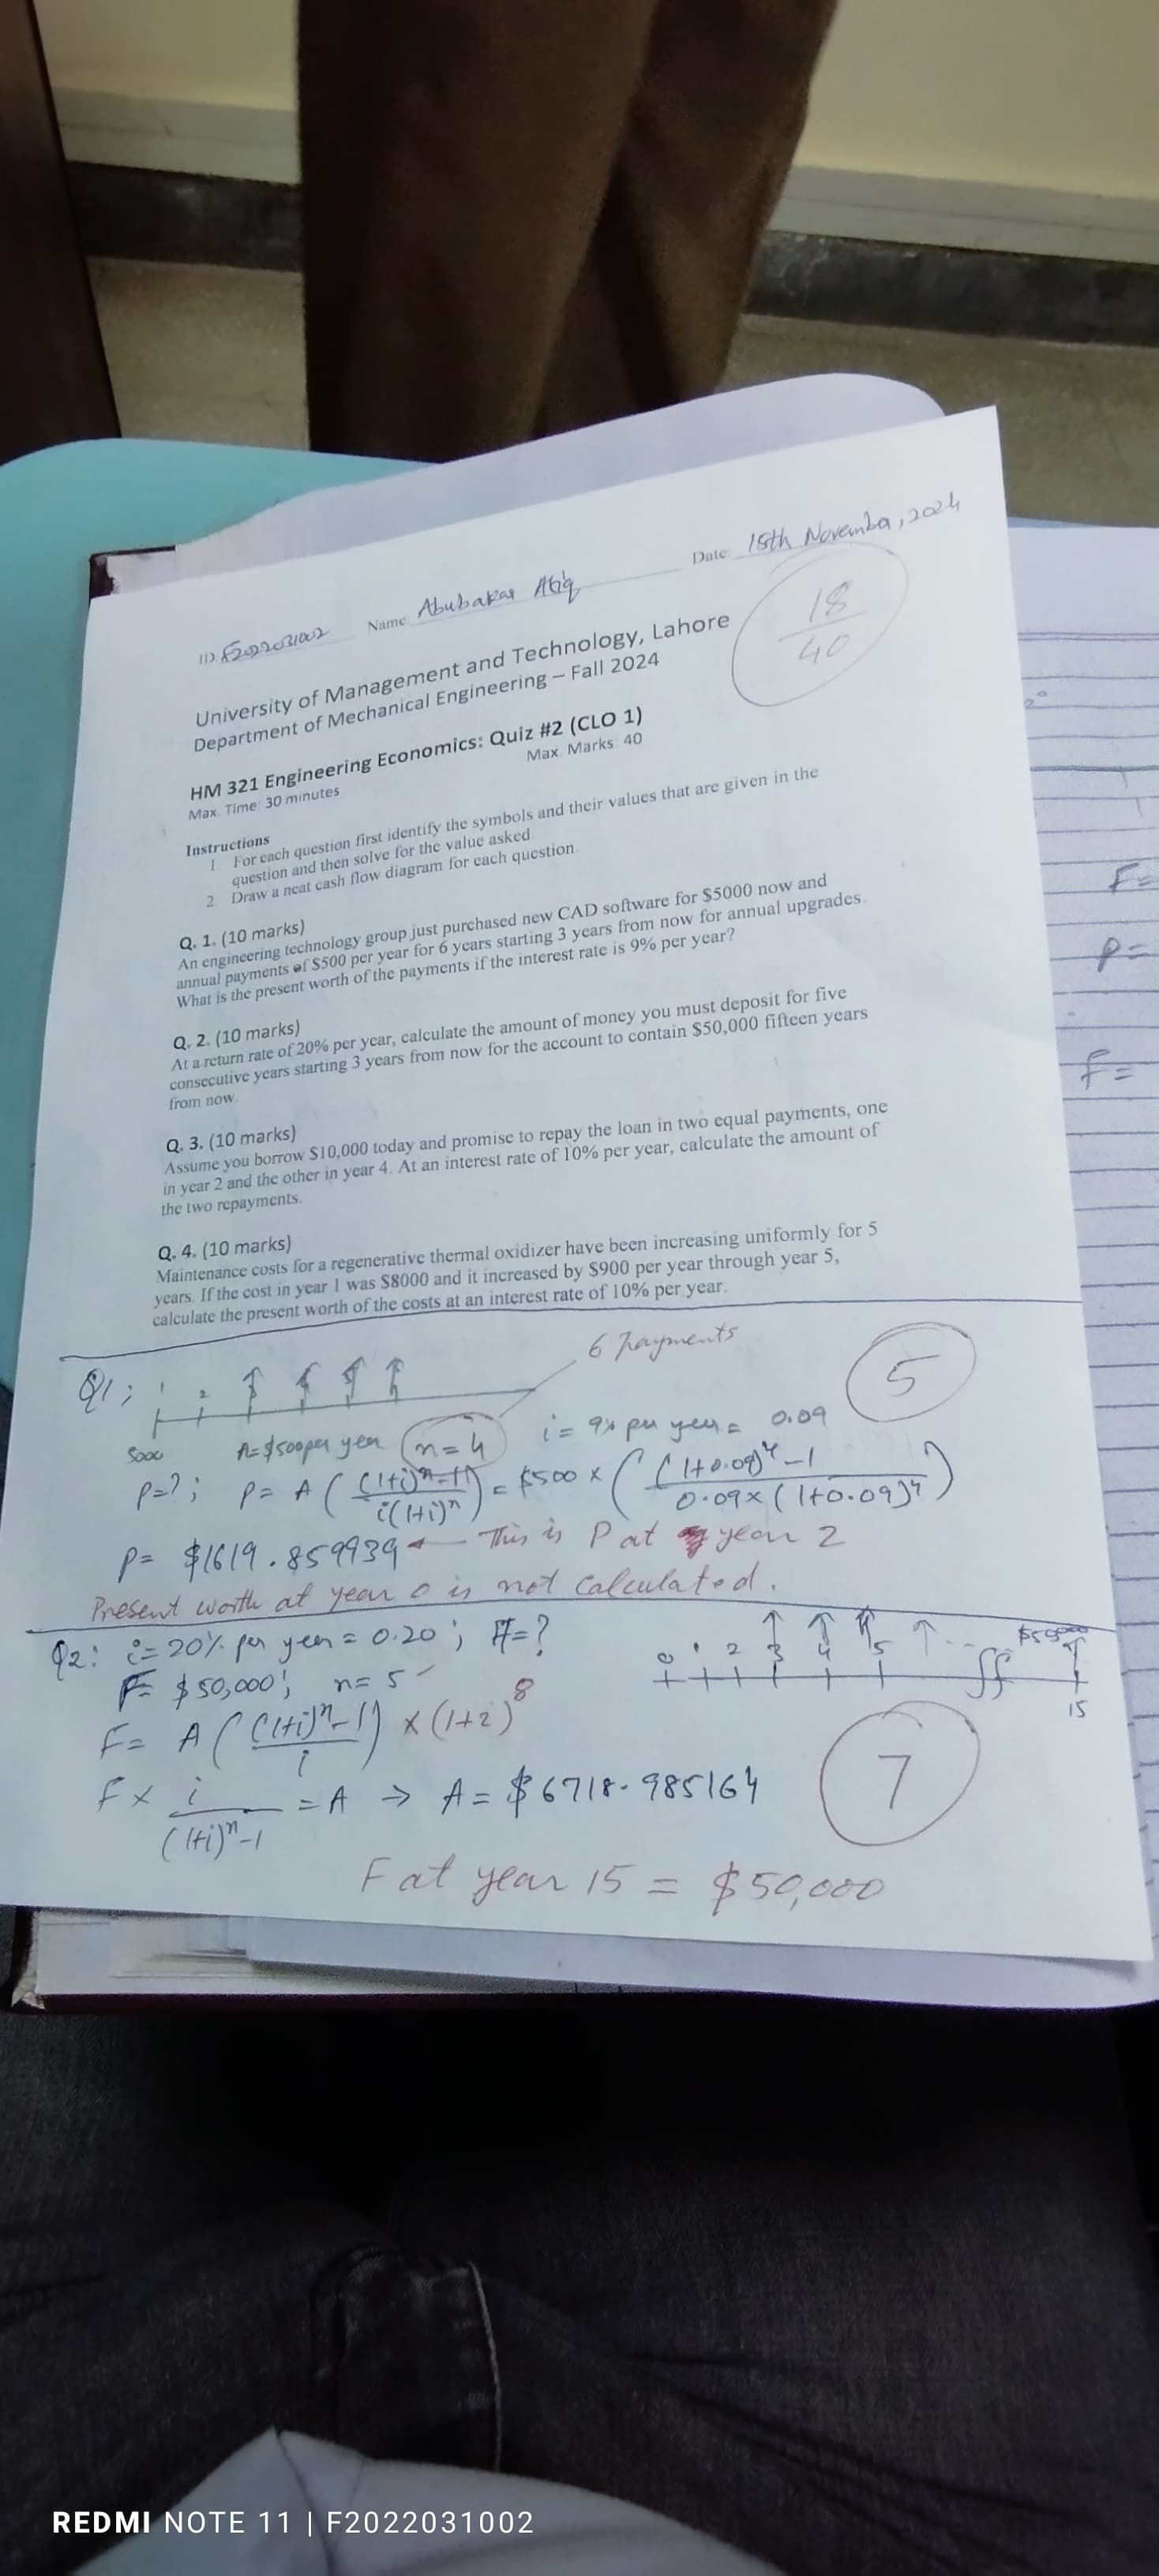 ID F2022031002 Name Abubakar Atiq Date 15th November, 2024
18
40
University of Management and Technology, Lahore
Department of Mechanical Engineering – Fall 2024
HM 321 Engineering Economics: Quiz #2 (CLO 1)
Max. Time: 30 minutes Max. Marks: 40
Instructions
1. For each question first identify the symbols and their values that are given in the
question and then solve for the value asked
2. Draw a neat cash flow diagram for each question
Q. 1. (10 marks)
An engineering technology group just purchased new CAD software for $5000 now and
annual payments of $500 per year for 6 years starting 3 years from now for annual upgrades.
What is the present worth of the payments if the interest rate is 9% per year?
Q. 2. (10 marks)
At a return rate of 20% per year, calculate the amount of money you must deposit for five
consecutive years starting 3 years from now for the account to contain $50,000 fifteen years
from now.
Q. 3. (10 marks)
Assume you borrow $10,000 today and promise to repay the loan in two equal payments, one
in year 2 and the other in year 4. At an interest rate of 10% per year, calculate the amount of
the two repayments.
Q. 4. (10 marks)
Maintenance costs for a regenerative thermal oxidizer have been increasing uniformly for 5
years. If the cost in year 1 was $8000 and it increased by $900 per year through year 5,
calculate the present worth of the costs at an interest rate of 10% per year.
6 payments
Q1; 1 2
5
5000 A=$500per year n=4 i= 9% per year= 0.09
P=?; P= A ( (1+i)^n-1 / i(1+i)^n ) = $500 x ( (1+0.09)^4 -1 / 0.09x(1+0.09)^4 )
P= $1619.859939 ← This is P at year 2
Present worth at year 0 is not calculated.
Q2: i=20% per year = 0.20; A=? 0 1 2 3 4 5 $50,000
F= $50,000; n=5 15
F= A ( (1+i)^n-1 / i ) x (1+i)^8
F x i / (1+i)^n-1 = A → A= $6718.985164
7
F at year 15 = $50,000
F=
P=
F=
REDMI NOTE 11 | F2022031002